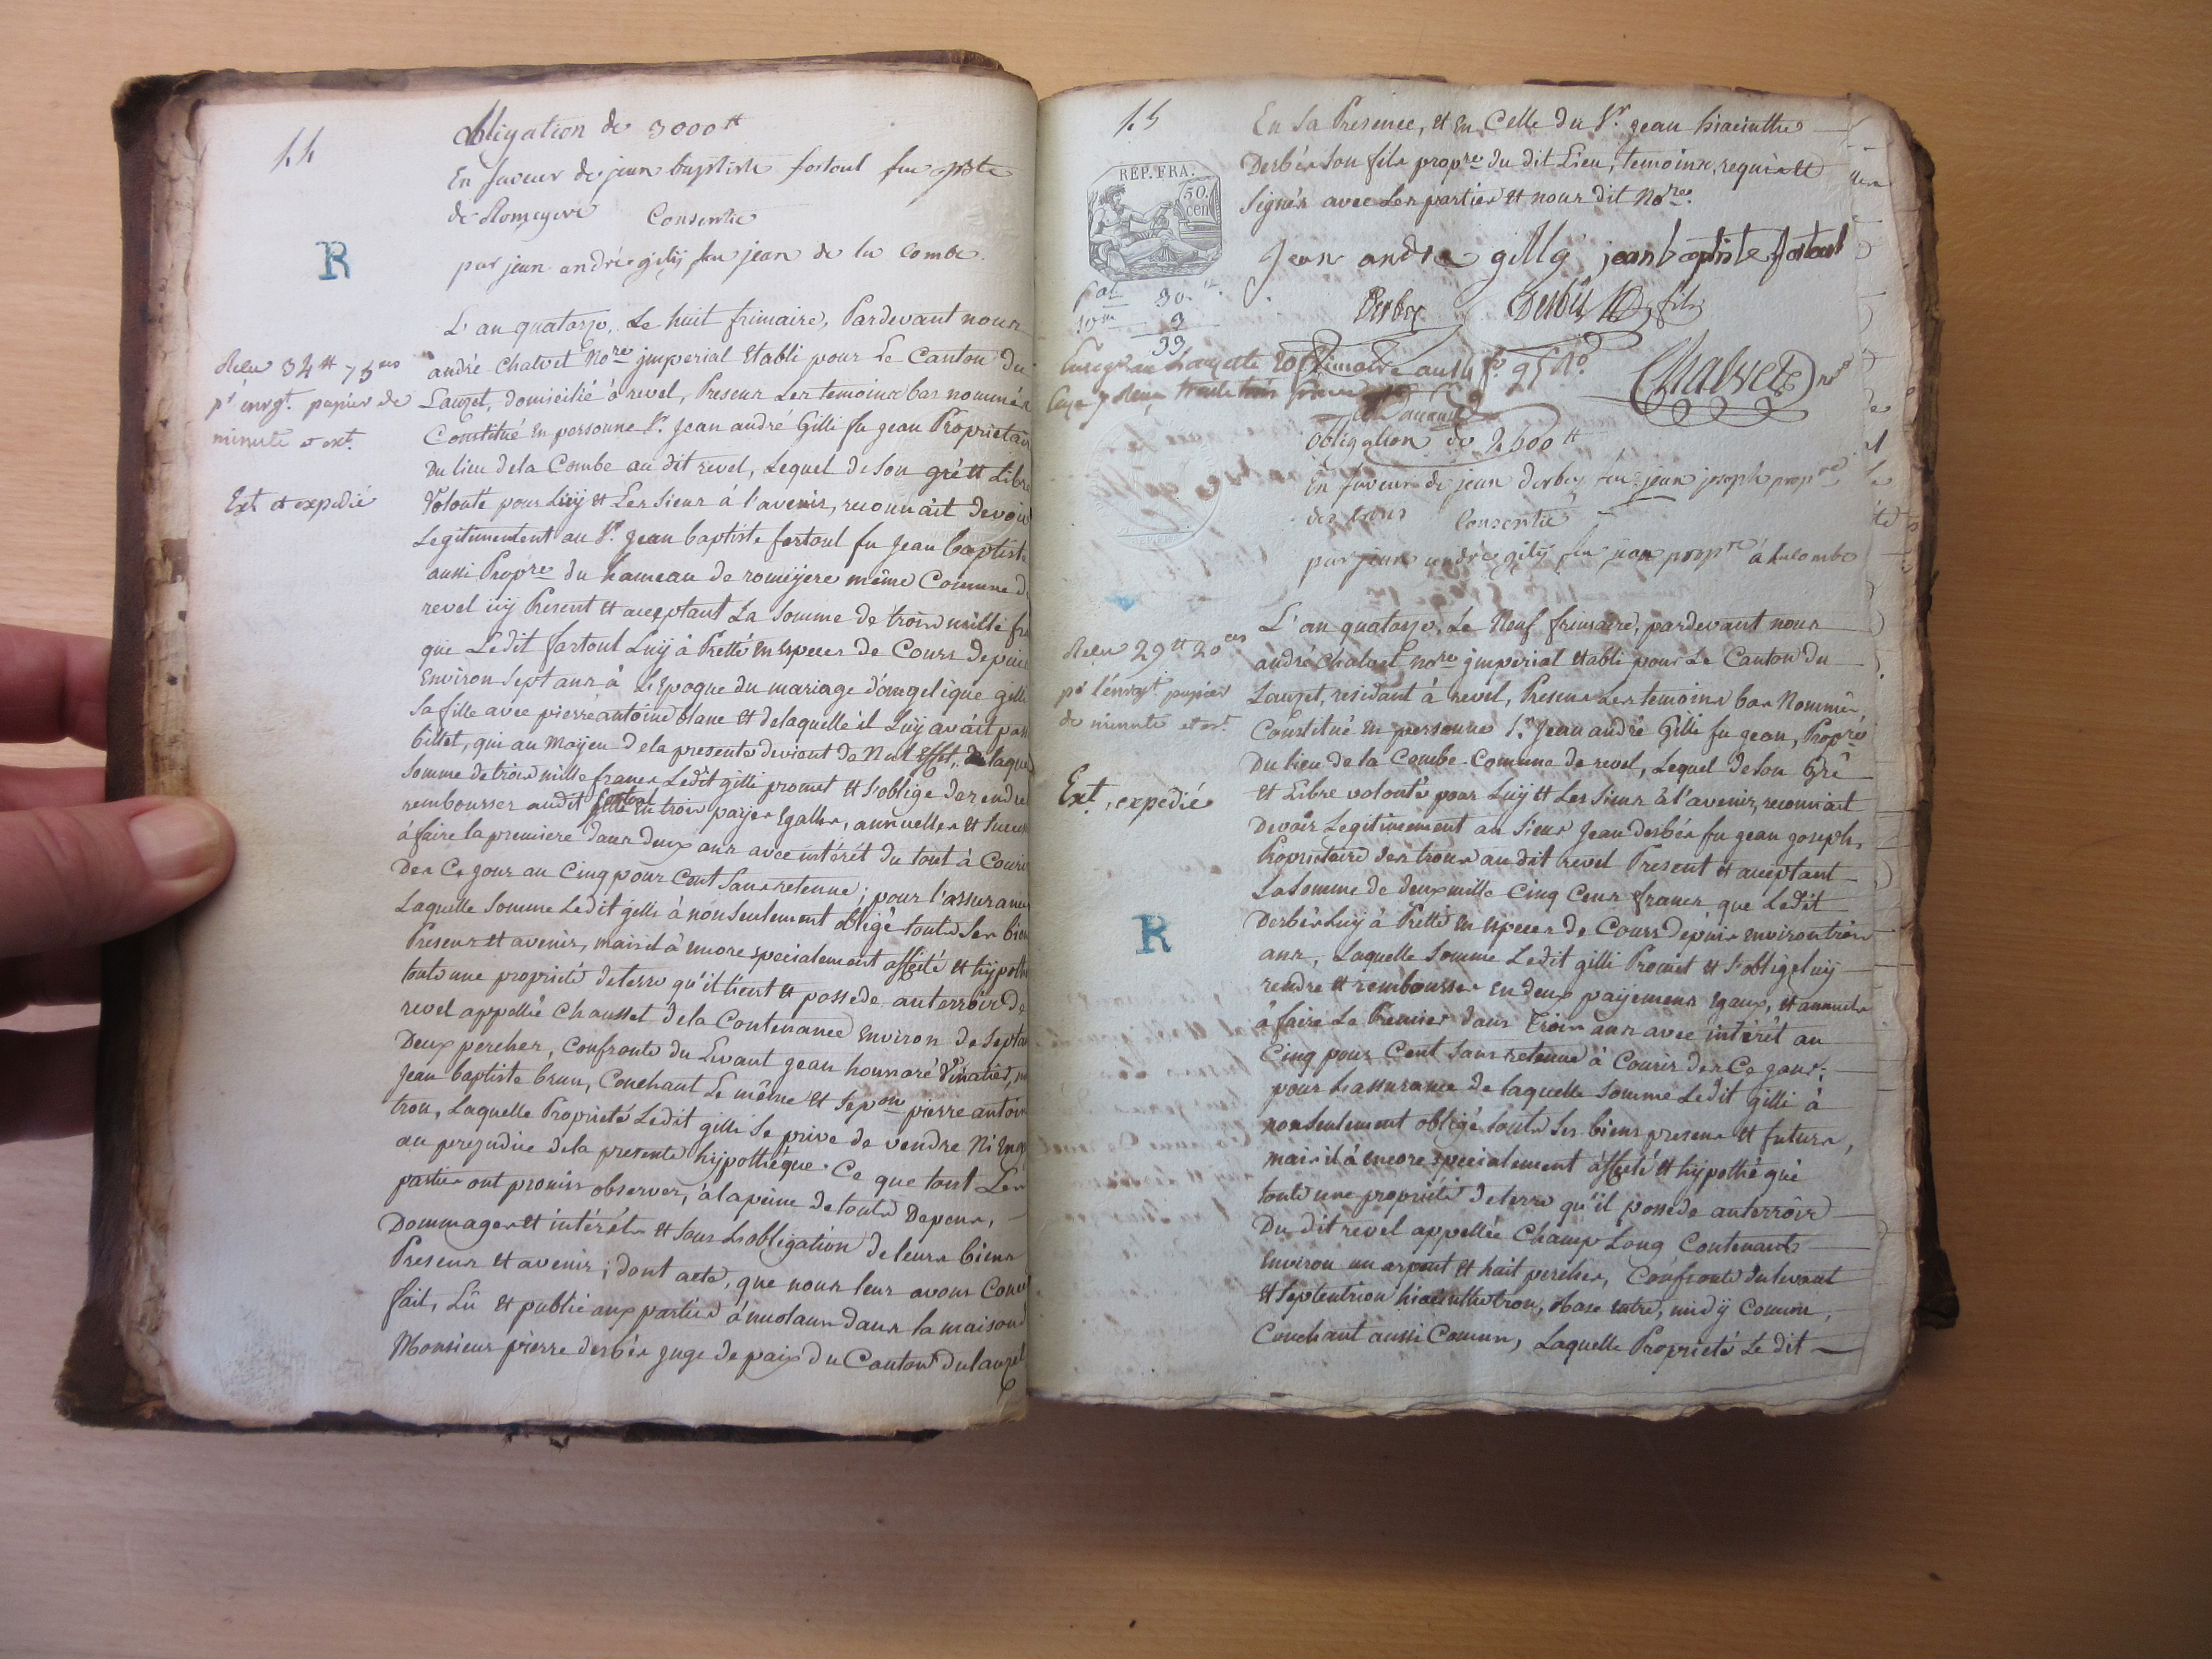 14
obligation de 3000 ₶
En faveur de jean baptiste fortoul feu jn bte
de Romeyere Consentie
par jean andré gily feu jean de la Combe
R
L'an quatorze, Le huit frimaire, Pardevant nous
Recu 34 ₶ 75 ces
pr enregt. papier de
minute et ext.
andré Chalvet nore jmperial Etabli pour Le Canton du
Lauzet, domicilié à revel, Presens Les temoins bas nommés
Constitué En personne Sr. Jean andré Gilli fu jean Proprietair
Ext et expedié
Du lieu dela Combe au dit revel, Lequel de son gré et Libre
Volonté pour Luij et Les Siens à l'avenir, reconnait devoir
Legitimement au Sr. Jean baptiste fortoul fu Jean baptiste
aussi Propre du hameau de romeijere même Comune d
revel icij Present et acceptant La Somme de trois mille fr
que Ledit fortoul Luij à Pretté En Especes de Cours depuis
Environ Sept ans à L'Epoque du mariage d'angelique gilli
Sa fille avec pierre antoine blanc et delaquelle il Luij avait pas
billet, qui au Moyen dela presente devient de Nul Effet, laque
Somme de trois mille francs Ledit gilli promet et S'oblige de rendre
rembourser audit fortoul En trois paijes Egalles, annuelles et
à faire la premiere dans deux ans avec intérét du tout à Courir
Des Ce jour au Cinq pour Cent Sans retenue; pour l'assurance
Laquelle Somme Ledit gilli à nonseulement obligé touts Ses bien
Presens et avenir, mais il à encore specialement affecté et hijpothe
toute une proprieté de terre qu'il tient et possede auterroir de
revel appellée Chausset dela Contenance Environ de Septa
Deux perches, Confronte du Levant jean honnoré
Jean baptiste brun, Couchant Le même et Sepon pierre antoin
tron, Laquelle Proprieté Ledit gilli Se prive de vendre Ni
au prejudice dela presente hijpothéque. Ce que tout Les
parties ont promis observer, à la peine de touts Depens,
Dommages et intérêts et Sous L'obligation de leurs biens
Presens et avenir; dont acte, que nous leur avons
fait, Lû et publié aux parties à meolans dans la maison
Monsieur pierre derbés juge de paix du Canton du lauzet
15
En Sa Presence, et En Celle du Sr. jean hiacinthe
Derbés Son fils propre du dit Lieu, temoins, requis et
Signés avec Les parties et nous dit Nore.
REP. FRA.
50.
cen
Jean andre gilly jean baptiste fortoul
Derbez Derbés fils
30.
3
33
Chalvet nre
obligation de 2500 ₶
En faveur de jean derbez feu jean joseph propre
des trons Consentie
par jean andré gily feu jean propre à la combe
L'an quatorze, Le Neuf frimaire, pardevant nous
Recu 29 ₶ 20 ces
pr l'enregt. papier
de minute et ext.
andré Chalvet nore jmperial Etabli pour Le Canton du
Lauzet, residant à revel, Presens Les temoins bas Nommés
Constitué En personne Sr. Jean andré Gilli fu jean, Propre
Du lieu de la Combe Comune de revel, Lequel de Son Gré
Ext. expedié
et Libre volonté pour Luij et Les Siens à l'avenir, reconnait
Devoir Legitimement au Sieur Jean derbés fu jean joseph,
Proprietaire des trons au dit revel Present et acceptant
La Somme de deux mille Cinq Cens francs que Ledit
R
Derbés Luij à Pretté En Especes de Cours depuis Environ trois
ans, Laquelle Somme Ledit gilli Promet et S'oblige Luij
rendre et rembourser En deux paijemens Egaux, et annuels
à faire Le Premier dans trois ans avec intérêt au
Cinq pour Cent Sans retenue à Courir des Ce jour;
pour L'assurance de laquelle Somme Ledit gilli à
nonseulement obligé touts Ses biens presens et futurs,
mais il à encore specialement affecté et hijpothéqué
toute une proprieté de terre qu'il possede auterroir
Du dit revel appellée Champ Long Contenant
Environ un arpent et huit perches, Confronte du levant
et Septentrion hiacinthe tron, Vase entre, midij Comun,
Couchant aussi Comun, Laquelle Proprieté Le dit